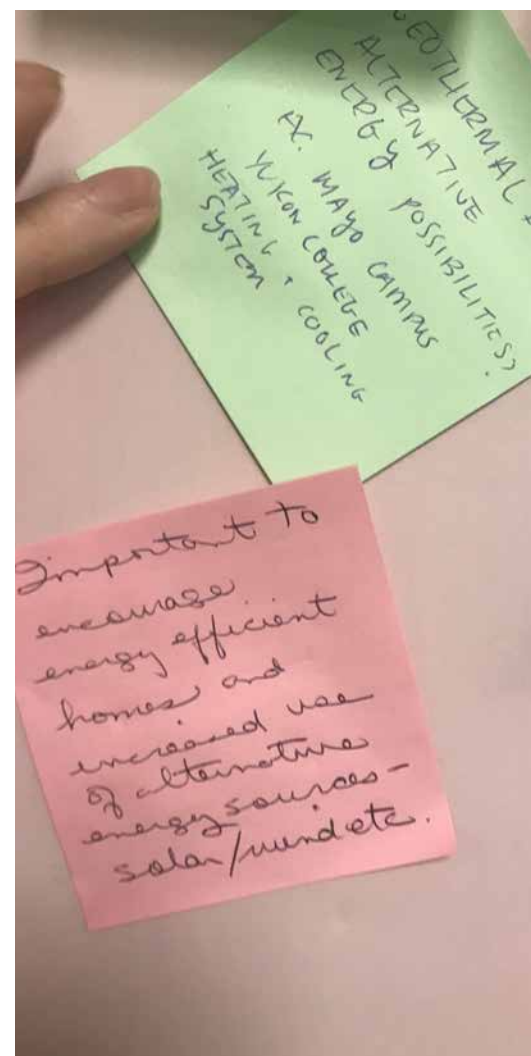 GEOTHERMAL +
ALTERNATIVE
ENERGY POSSIBILITIES?
EX. MAYO CAMPUS
YUKON COLLEGE
HEATING + COOLING
SYSTEM
Important to
encourage
energy efficient
homes and
increased use
of alternative
energy sources –
solar/wind etc.